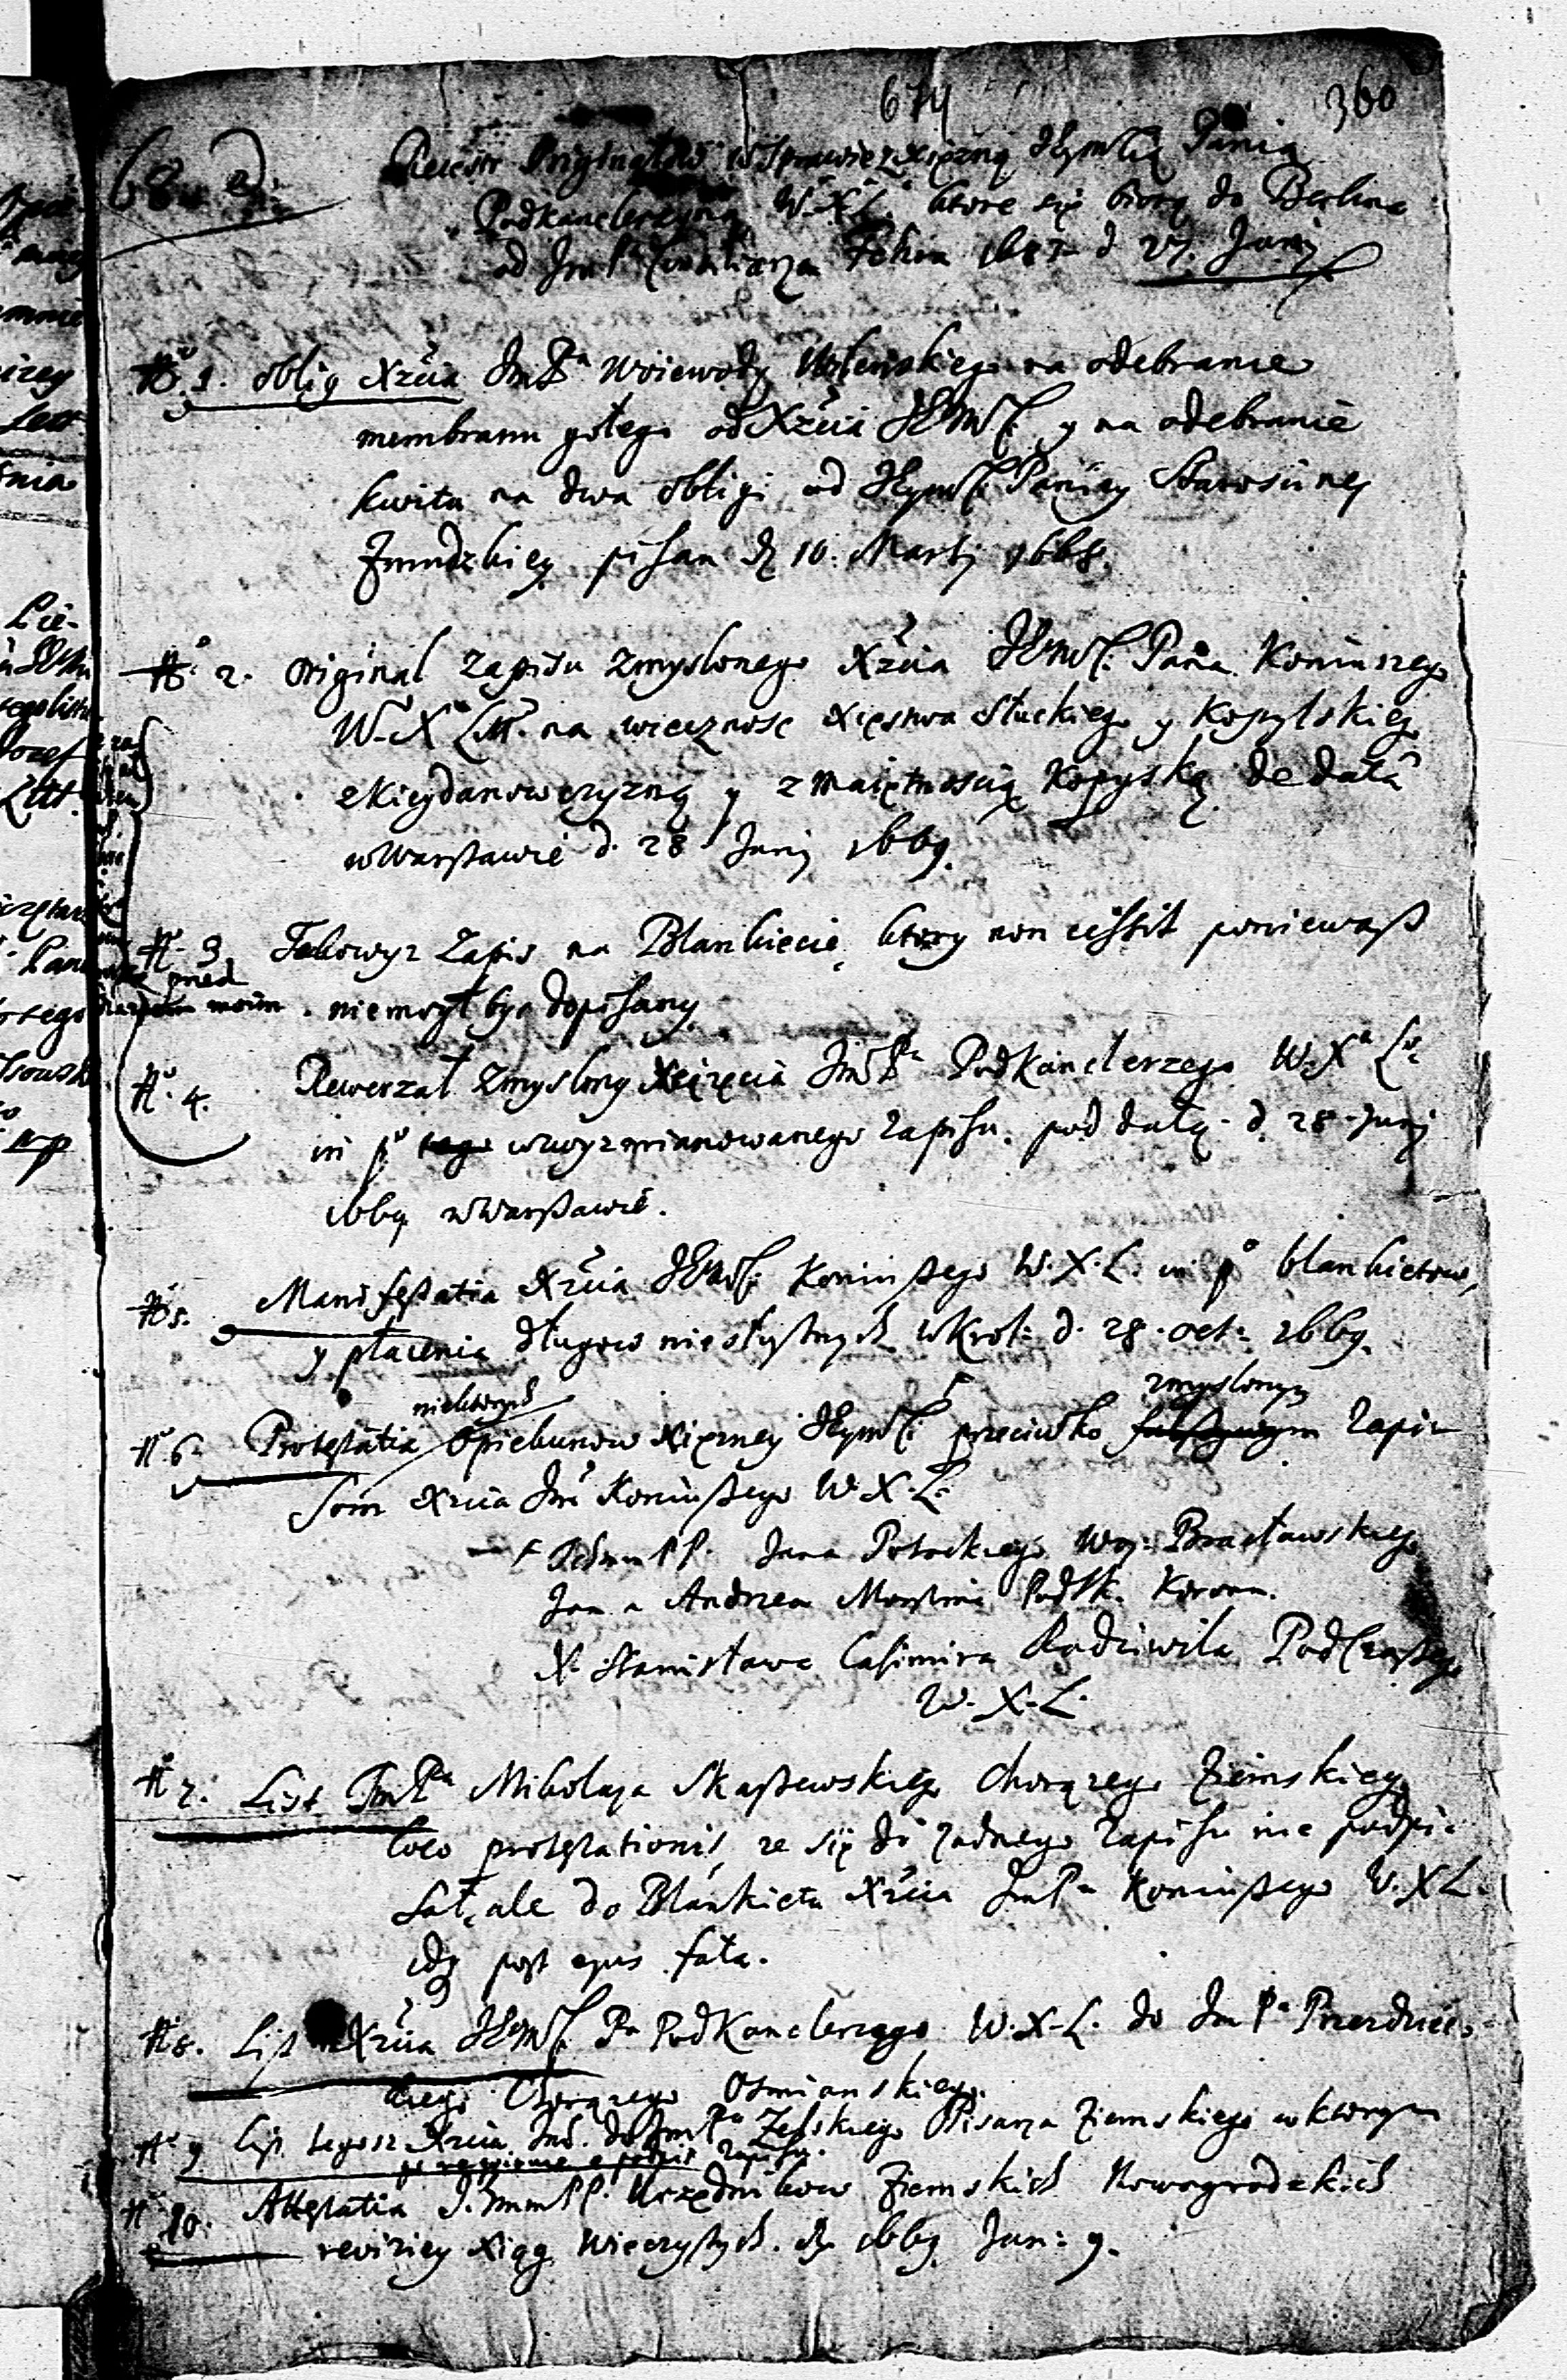 674 360
Originałow w sprawie z xiężną Jeymścią Panią
Podkanclerzyną W.X.L. ktore się biorą do Berlina
od JmPa Felkia d 27. Junij
No 1. oblig Xżcia JmPa Woiewody Wileńskiego na odebranie
membranu gołego od Xżcia JEMści y na odebranie
kwitu na dwa obligi od JEymści Paniey Starościney
Żmudzkiey pisan d 10. Martij 1668.
No 2. Originał Zapisu zmyslonego Xżcia JEMści Pana Koniuszego
W.X.Litt. na wiecznosc xięstwa Słuckiego y Kopylskiego
z Kieydanowczyzną y z maiętnoscią Kopyską de data
w Warszawie d. 28 Junij 1669.
No 3. Takowyż Zapis na Blankiecie, ktory non existit poniewasz
niemogł byc dopisany
No 4. Rewerzał zmyslony Xiążęcia JmPa Podkanclerzego W.X. Lo
in po tego wwyzmianowanego Zapisu. pod datą d. 28 Junij
1669 w Warszawie.
No 5. Manifestatia Xżcia JEMści Koniuszego W.X.L. in po blankietow,
y płacenia długow niesłusznych w Krol: d. 28. oct: 1669.
niektorych zmyslonym
No 6. Protestatia Opiekunow Xiężney JEymści przeciwko fałszywym Zapi-
som Xżcia Jmci Koniuszego W.X.L.
PP. Jana Potockiego Woj: Bracławskiego
Jana Andrzea Morstina Podsk. Koronn.
X. Stanisława Casimira Radziwiła PodCzaszego
W.X.L.
No 7. List JmPa Mikołaja Skaszewskiego Chorążego Ziemskiego
loco protestationis, ze się do żadnego Zapisu nie podpi-
sał, ale do Blankietu Xżcia JmPa Koniuszego W.X.L.
idq post ejus fata.
No 8. List Xżcia JEMści Pa PodKanclerzego W.X.L. do JmPa Przezdziec-
kiego Chorążego Oszmianskiego.
No 9 List tegosz Xżcia Jmci. do JmPa Pisarza Ziemskiego w ktorym
o podpis Zapisu.
No 10. Attestatia J.JmmPP. Urzędnikow Ziemskich Nowogrodzkich
reviziey Xiąg Wieczystych. d 1669 Jun: 9.